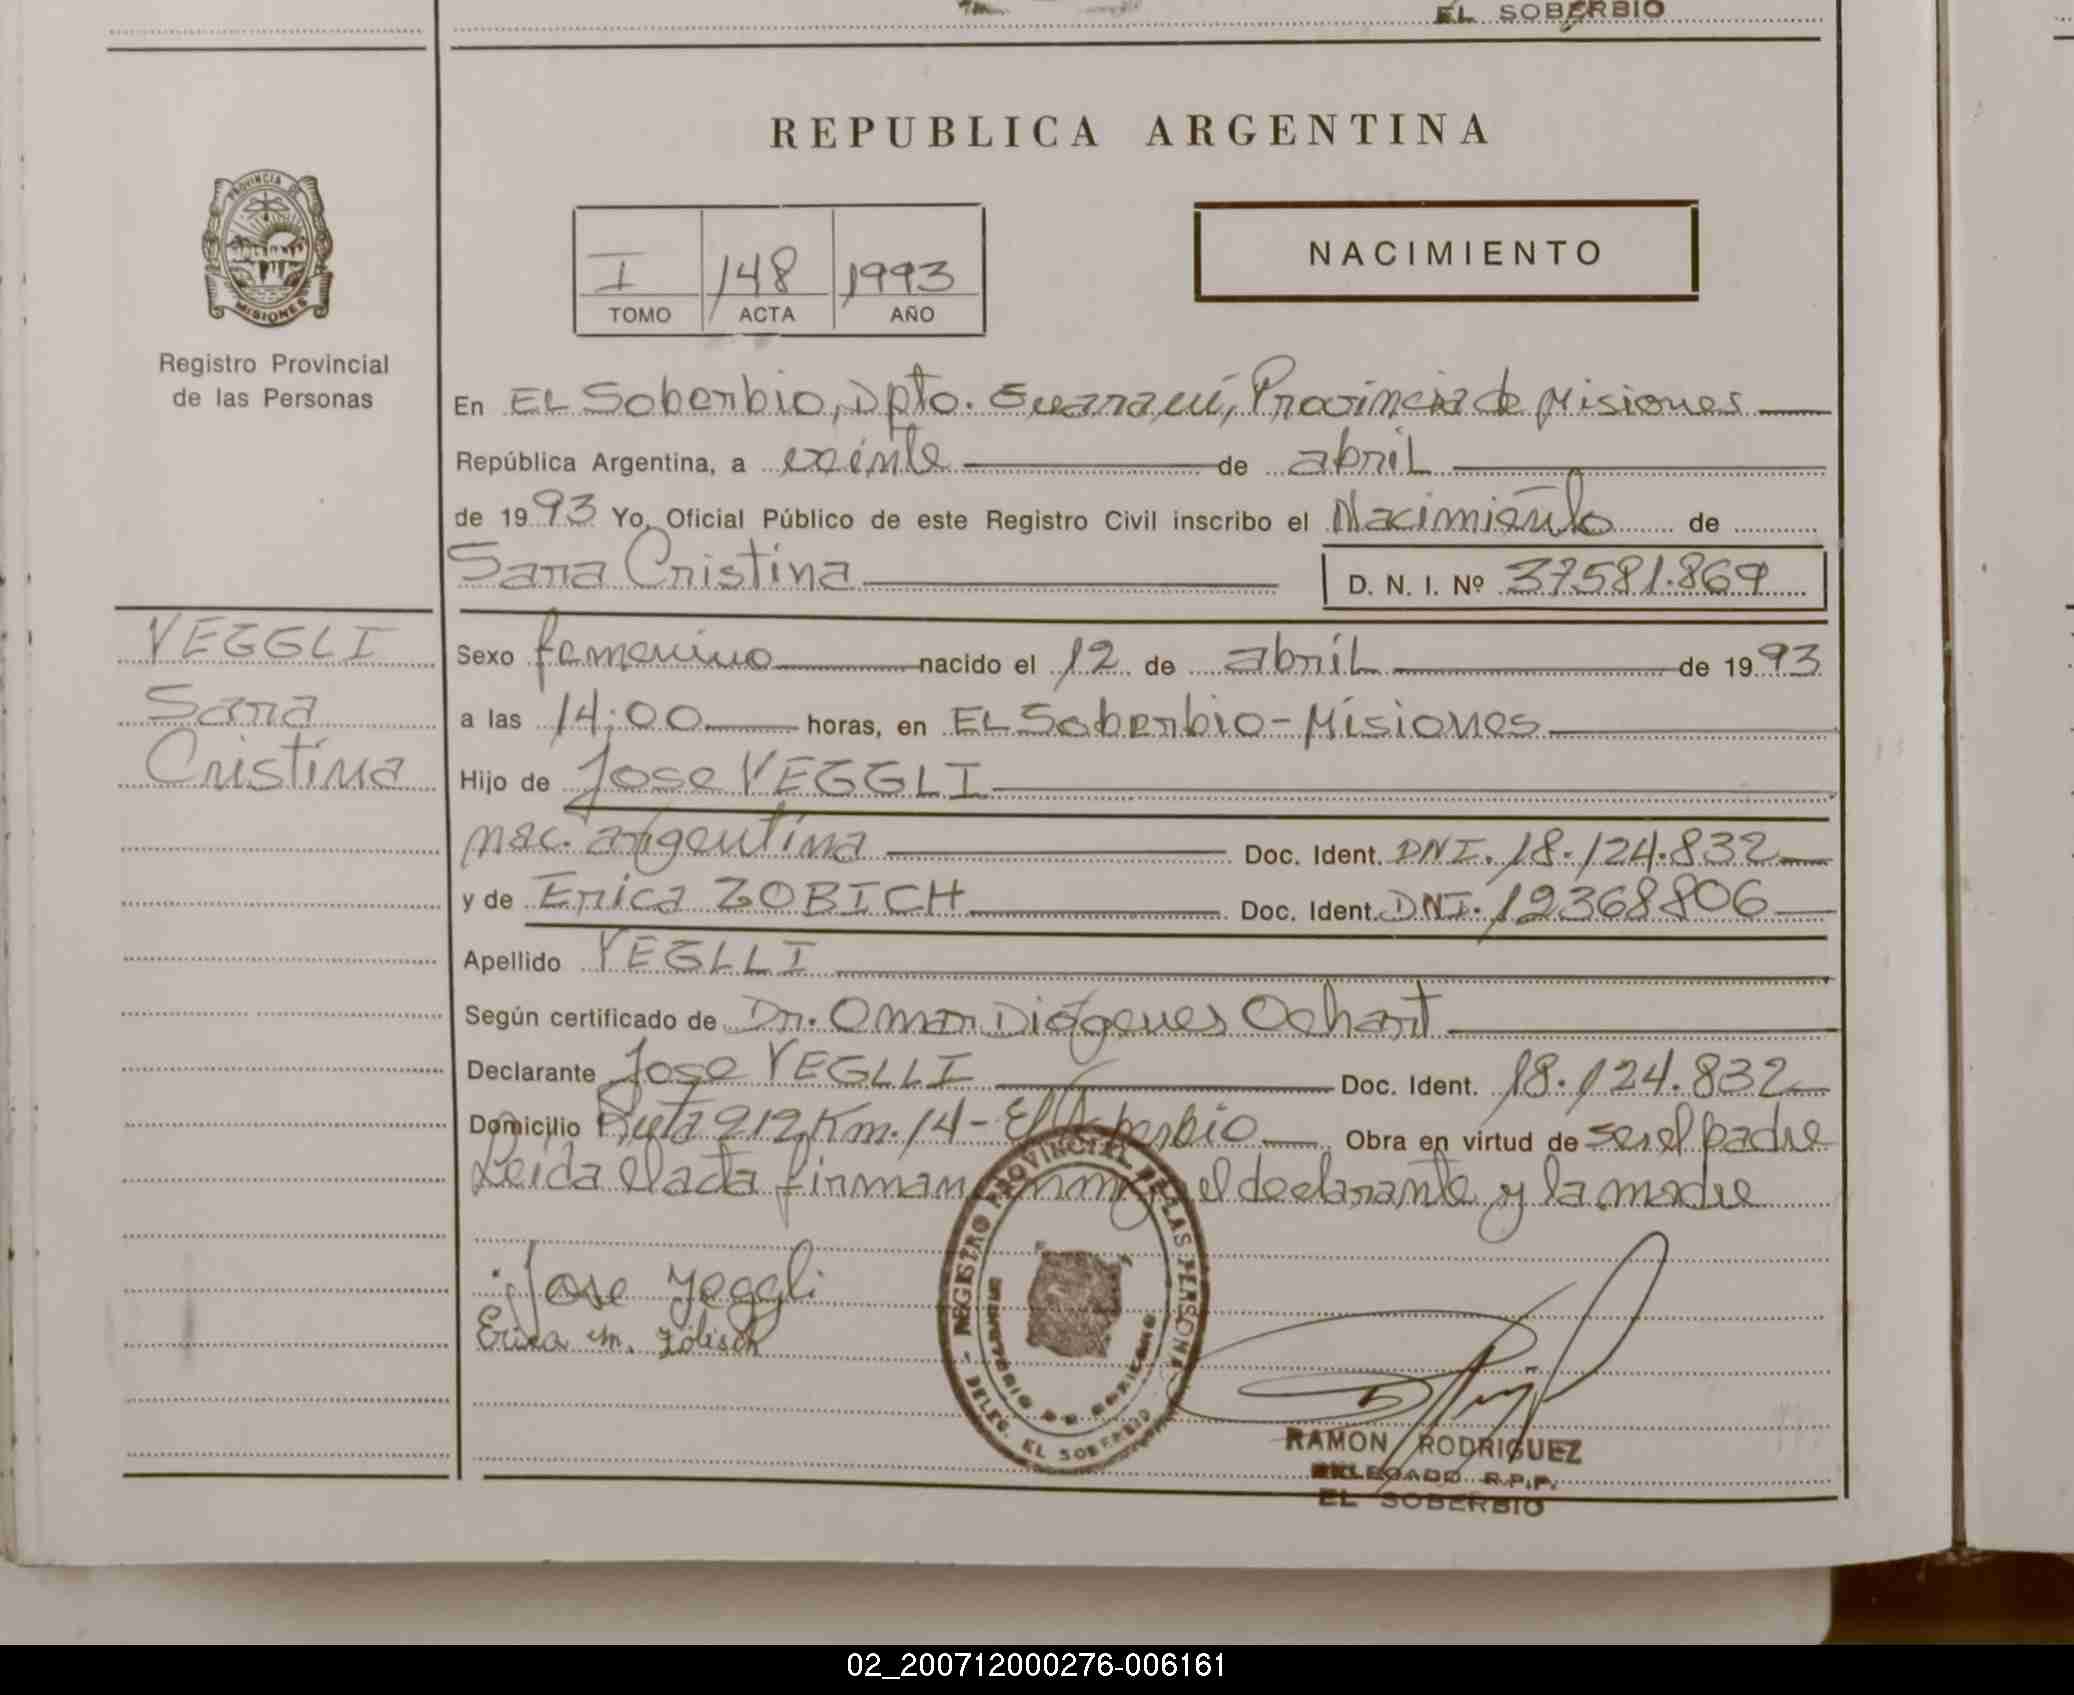 EL SOBERBIO
REPUBLICA ARGENTINA
PROVINCIA DE
MISIONES
Registro Provincial
de las Personas
I 148 1993
TOMO ACTA AÑO
NACIMIENTO
En EL Soberbio, Dpto. Guaraní, Provincia de Misiones
República Argentina, a veinte de abril
de 1993 Yo, Oficial Público de este Registro Civil inscribo el Nacimiento de
Sara Cristina D. N. I. Nº 37581.869
VEGGLI
Sara
Cristina
Sexo femenino nacido el 12 de abril de 1993
a las 14:00 horas, en EL Soberbio - Misiones
Hijo de Jose VEGGLI
nac. argentina Doc. Ident. DNI. 18.124.832
y de Erica ZOBICH Doc. Ident. DNI. 12368806
Apellido YEGLLI
Según certificado de Dr. Omar Diógenes Ochart
Declarante Jose YEGLLI Doc. Ident. 18.124.832
Domicilio Ruta 212 Km. 14 - El Soberbio Obra en virtud de ser el padre
Leida el acta firman conmigo el declarante y la madre
Jose Yeggli
Erica m. Zóbisch
REGISTRO PROVINCIAL DE LAS PERSONAS
DELEG. EL SOBERBIO
RAMON RODRIGUEZ
DELEGADO R.P.P.
EL SOBERBIO
02_200712000276-006161